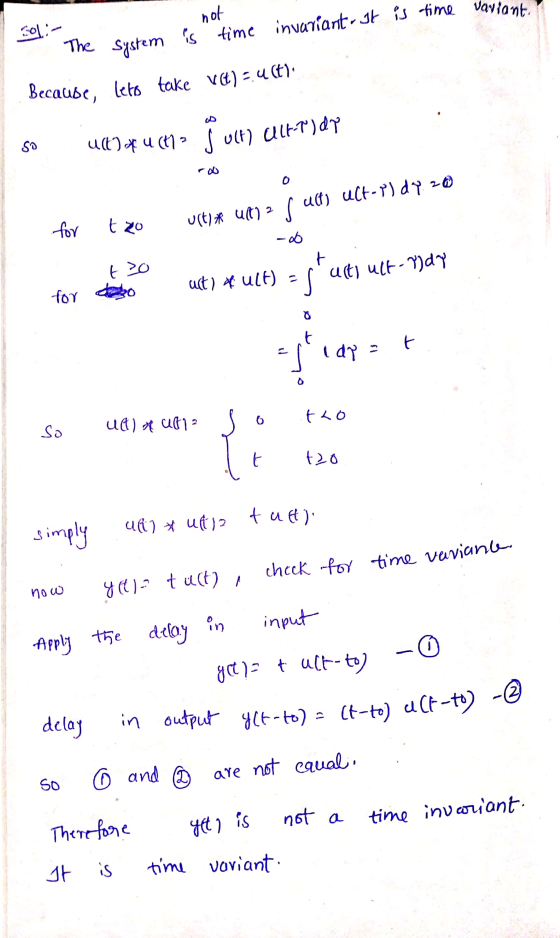 Sol:- The system is not time invariant. It is time variant.
Because, lets take v(t) = u(t).
so u(t) * u(t) = ∫_{-∞}^{∞} u(t) u(t-τ)dτ
for t≥0 u(t) * u(t) = ∫_{-∞}^{0} u(t) u(t-τ) dτ = 0
for t≥0 u(t) * u(t) = ∫_{0}^{t} u(t) u(t-τ)dτ
= ∫_{0}^{t} 1 dτ = t
So u(t) * u(t) = { 0 t<0
t t≥0
simply u(t) * u(t) = t u(t).
now y(t) = t u(t) , check for time variance
Apply the delay in input
y(t) = t u(t-to) - ①
delay in output y(t-to) = (t-to) u(t-to) - ②
so ① and ② are not equal.
Therefore y(t) is not a time invariant.
It is time variant.